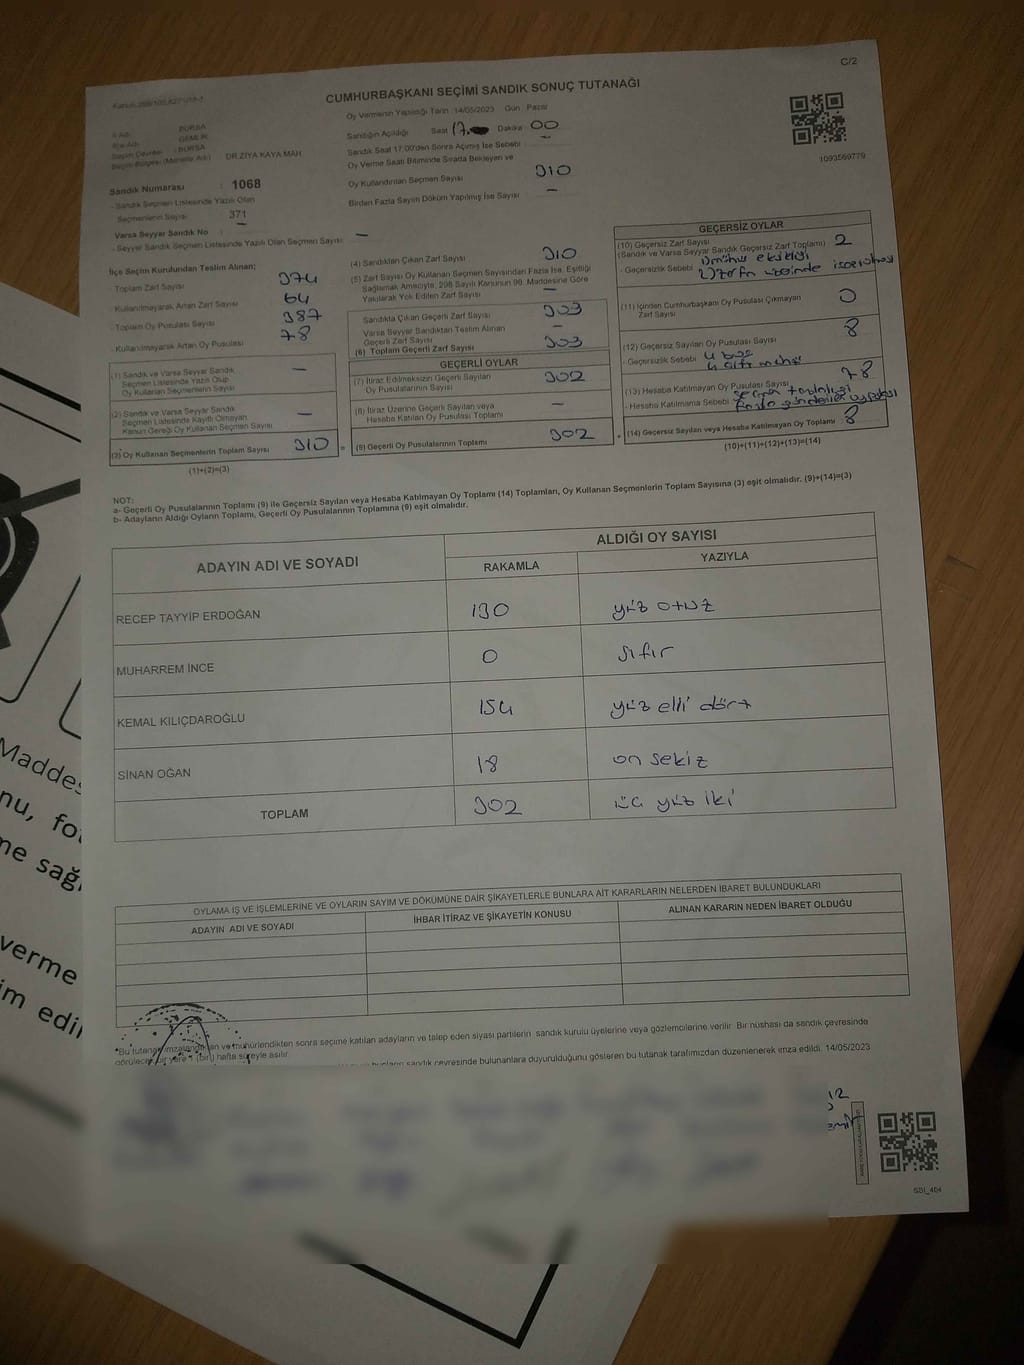 C/2
CUMHURBAŞKANI SEÇİMİ SANDIK SONUÇ TUTANAĞI
Oy Vermenin Yapıldığı Tarih :14/05/2023 Gün Pazar
Sandığın Açıldığı Saat 17 Dakika 00
Sandık Saat 17:00'den Sonra Açımış İse Sebebi –
Oy Verme Saati Bitiminde Sırada Bekleyen ve
Oy Kullandırılan Seçmen Sayısı 310
Birden Fazla Sayım Döküm Yapılmış İse Sayısı –
1093569779
İl Adı : BURSA
İlçe Adı : GEMLİK
Seçim Çevresi : BURSA
Seçim Bölgesi (Mahalle Adı) DR.ZİYA KAYA MAH
Sandık Numarası : 1068
- Sandık Seçmen Listesinde Yazılı Olan
Seçmenlerin Sayısı 371
Varsa Seyyar Sandık No –
- Seyyar Sandık Seçmen Listesinde Yazılı Olan Seçmen Sayısı: –
İlçe Seçim Kurulundan Teslim Alınan:
- Toplam Zarf Sayısı 374
- Kullanılmayarak Artan Zarf Sayısı 64
- Toplam Oy Pusulası Sayısı 387
- Kullanılmayarak Artan Oy Pusulası 78
(1) Sandık ve Varsa Seyyar Sandık
Seçmen Listesinde Yazılı Olup
Oy Kullanan Seçmenlerin Sayısı –
(2) Sandık ve Varsa Seyyar Sandık
Seçmen Listesinde Kayıtlı Olmayan
Kanun Gereği Oy Kullanan Seçmen Sayısı –
(3) Oy Kullanan Seçmenlerin Toplam Sayısı 310 =
(1)+(2)=(3)
(4) Sandıktan Çıkan Zarf Sayısı 310
(5) Zarf Sayısı Oy Kullanan Seçmen Sayısından Fazla İse, Eşitliği
Sağlamak Amacıyla, 298 Sayılı Kanunun 98. Maddesine Göre
Yakılarak Yok Edilen Zarf Sayısı –
Sandıkta Çıkan Geçerli Zarf Sayısı 303
Varsa Seyyar Sandıktan Teslim Alınan
Geçerli Zarf Sayısı –
(6) Toplam Geçerli Zarf Sayısı 303
GEÇERLİ OYLAR
(7) İtiraz Edilmeksizin Geçerli Sayılan
Oy Pusulalarının Sayısı 302
(8) İtiraz Üzerine Geçerli Sayılan veya
Hesaba Katılan Oy Pusulası Toplamı –
(9) Geçerli Oy Pusulalarının Toplamı 302 +
GEÇERSİZ OYLAR
(10) Geçersiz Zarf Sayısı 2
(Sandık ve Varsa Seyyar Sandık Geçersiz Zarf Toplamı)
- Geçersizlik Sebebi 1) mühür eksikliği
2) zarfın üzerinde
(11) İçinden Cumhurbaşkanı Oy Pusulası Çıkmayan
Zarf Sayısı 0
(12) Geçersiz Sayılan Oy Pusulası Sayısı 8
- Geçersizlik Sebebi 4 boş
4 çift mühür
(13) Hesaba Katılmayan Oy Pusulası Sayısı 78
- Hesaba Katılmama Sebebi
fazla gönderilen
(14) Geçersiz Sayılan veya Hesaba Katılmayan Oy Toplamı 8
(10)+(11)+(12)+(13)=(14)
NOT:
a- Geçerli Oy Pusulalarının Toplamı (9) ile Geçersiz Sayılan veya Hesaba Katılmayan Oy Toplamı (14) Toplamları, Oy Kullanan Seçmenlerin Toplam Sayısına (3) eşit olmalıdır. (9)+(14)=(3)
b- Adayların Aldığı Oyların Toplamı, Geçerli Oy Pusulalarının Toplamına (9) eşit olmalıdır.
ADAYIN ADI VE SOYADI
ALDIĞI OY SAYISI
RAKAMLA YAZIYLA
RECEP TAYYİP ERDOĞAN 130 yüz otuz
MUHARREM İNCE 0 sıfır
KEMAL KILIÇDAROĞLU 154 yüz elli dört
SİNAN OĞAN 18 on sekiz
TOPLAM 302 üç yüz iki
OYLAMA İŞ VE İŞLEMLERİNE VE OYLARIN SAYIM VE DÖKÜMÜNE DAİR ŞİKAYETLERLE BUNLARA AİT KARARLARIN NELERDEN İBARET BULUNDUKLARI
ADAYIN ADI VE SOYADI İHBAR İTİRAZ VE ŞİKAYETİN KONUSU ALINAN KARARIN NEDEN İBARET OLDUĞU
*Bu tutanak imzalandıktan ve mühürlendikten sonra seçime katılan adayların ve talep eden siyasi partilerin sandık kurulu üyelerine veya gözlemcilerine verilir. Bir nüshası da sandık çevresinde
görülecek bir yere 1 (bir) hafta süreyle asılır.
bunların sandık çevresinde bulunanlara duyurulduğunu gösteren bu tutanak tarafımızdan düzenlenerek imza edildi. 14/05/2023
SBI_404
Maddes
nu, fo
me sağl
verme
im edil